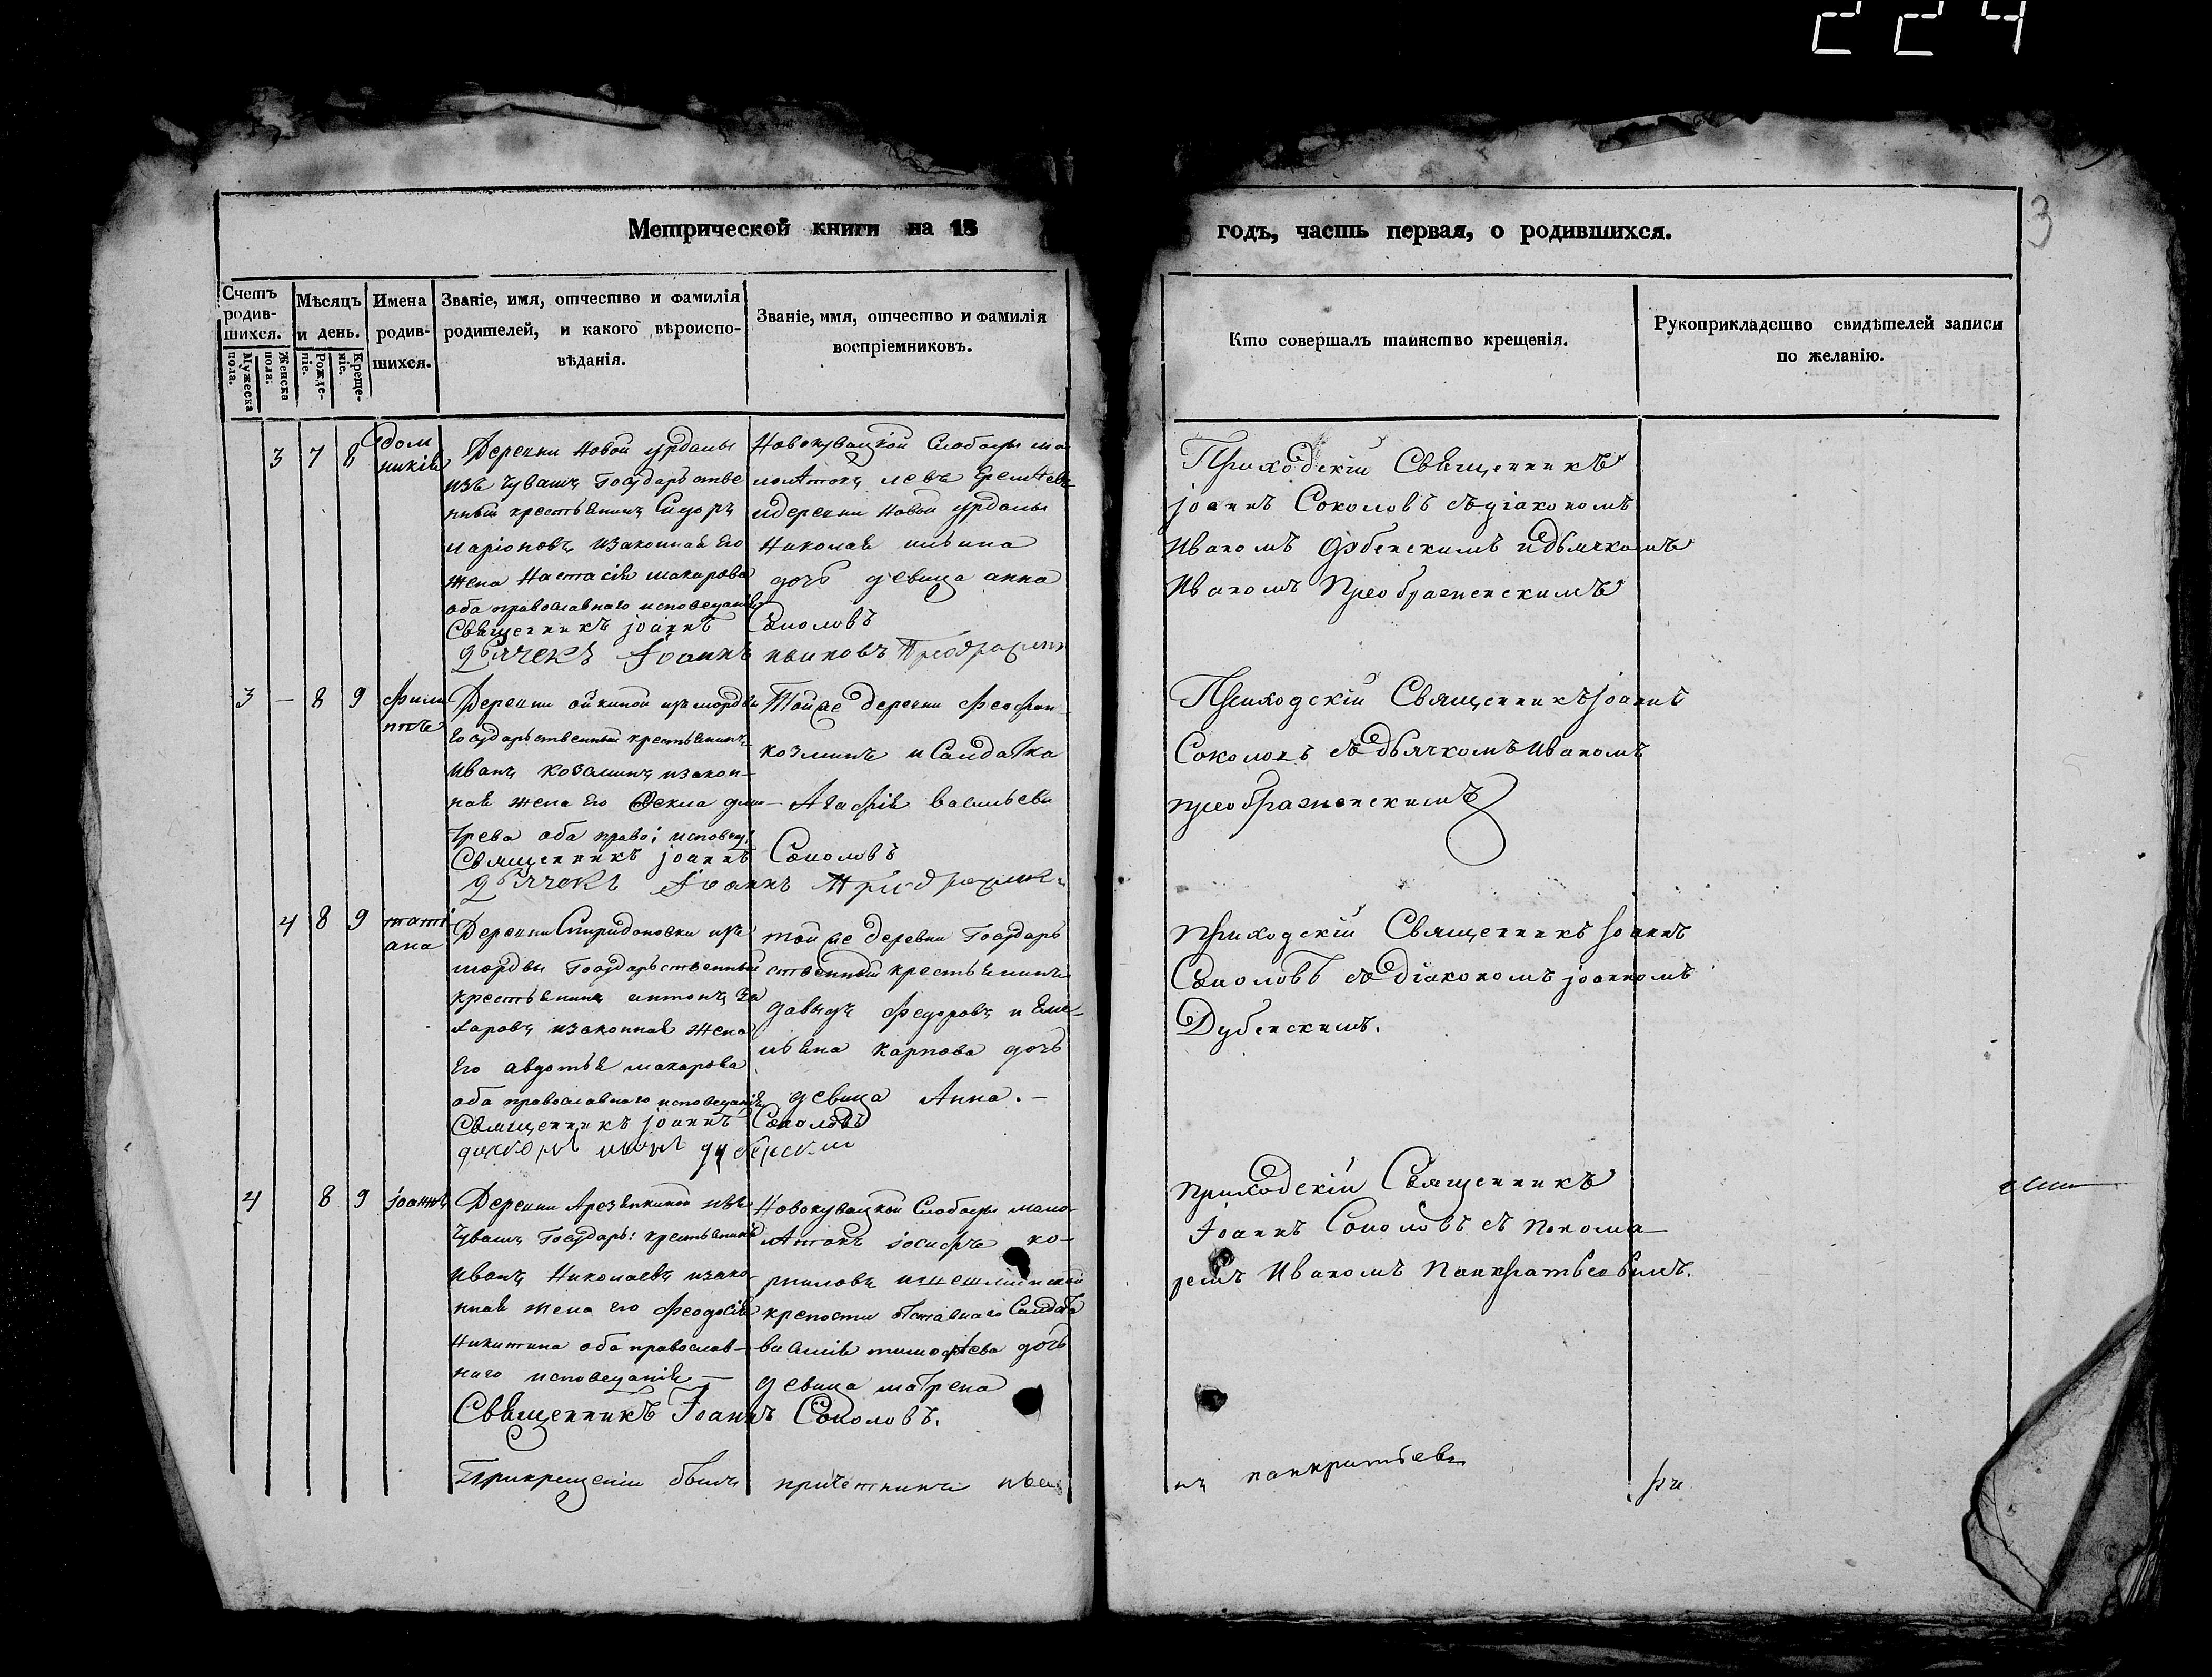 224
3
Метрической книги на 18 годъ, часть первая, о родившихся.
Счетъ родив-шихся.
Мужеска пола.
Женска пола.
Мѣсяцъ и день.
Рожде-ніе.
Креще-ніе.
Имена родив-шихся.
Званіе, имя, отчество и фамилія
родителей, и какого вѣроиспо-
вѣданія.
Званіе, имя, отчество и фамилія
воспріемниковъ.
Кто совершалъ таинство крещенія.
Рукоприкладство свидѣтелей записи
по желанію.
3 7 8
дом
никія
Деревни Новой урдалы
изъ Чувашъ Государстве
нный крестьянинъ Сидоръ
ларіоновъ изаконная Его
жена Настасія макарова
оба православнаго исповеданія
Священникъ јоаннъ Соколовъ
дьячекъ Іоаннъ
Слободы ма
левъ
идеревни Новой урдалы
Николая ильина
дочь девица анна
Приходскій Священникъ
јоаннъ Соколовъ съдіакономъ
Иваномъ Дубенскимъ идьячкомъ
Иваномъ Преображенскимъ
3 — 8 9
фили
ппъ
Деревни ойкиной изъ мордвы
Государственный крестьянинъ
Иванъ козминъ изакон-
ная жена Его Фекла дми-
трева оба право: исповед:
Священникъ јоаннъ Соколовъ
дьячекъ Іоаннъ
Тойже деревни
козминъ и Салдатка
Агафія васильева
Приходскій Священникъ јоаннъ
Соколовъ съдьячкомъ Иваномъ
преображенскимъ
4 8 9
тати
ана
Деревни Спиридоновки изъ
мордвы Государственный
крестьянинъ антонъ За
харовъ изаконная жена
Его авдотья макарова
оба православнаго исповеданія
Священникъ јоаннъ Соколовъ
тойже деревни Государь
ственный крестьянинъ
давыдъ Федоровъ и Еме-
льяна карпова дочь
девица Анна. —
Приходскій Священникъ јоаннъ
Соколовъ съдіакономъ јоанномъ
Дубенскимъ.
4 8 9
јоаннъ
Деревни изъ
Чувашъ Государь: крестьянинъ
Иванъ Николаевъ изако-
нная жена его Феодосія
Никитина оба православ-
наго исповеданія —
Священникъ Іоаннъ Соколовъ.
Слободы мало-
іосифъ ко-
рниловъ
крепости отставнаго Салдата
василія тимофеева дочь
девица матрена
приходскій Священникъ
Іоаннъ Соколовъ съ понома
ремъ Иваномъ Панкратьевымъ.
Прикрещеніи былъ причетникъ Иванъ панкратьевъ